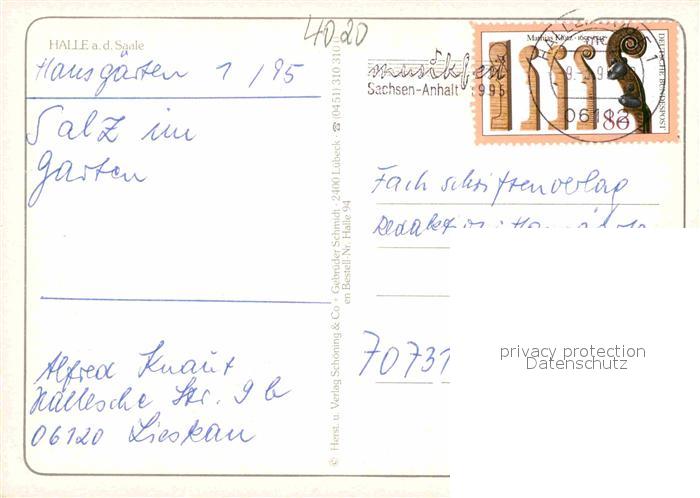 4020
HALLE a. d. Saale
Hausgärten 1/95
Salz im
Garten
Alfred Knaut
Hallesche Str. 9b
06120 Lieskau
© Herst. u. Verlag Schöning & Co + Gebrüder Schmidt · 2400 Lübeck ☎ (0451) 310 310
en Bestell-Nr. Halle 94
musikfest
Sachsen-Anhalt 1995
Mathias Klotz
DEUTSCHE BUNDESPOST
80
HALLE
06112
Fachschriftenverlag
Redaktion Hausgärten
70731
privacy protection
Datenschutz